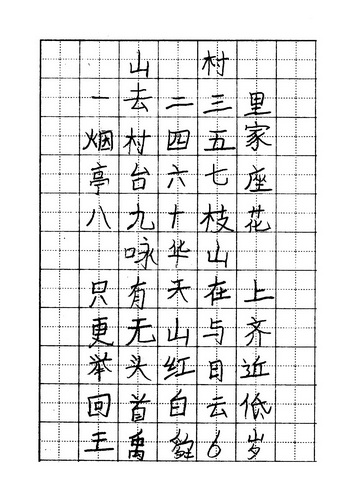 山村
一去二三里
烟村四五家
亭台六七座
八九十枝花
咏华山
只有天在上
更无山与齐
举头红日近
回首白云低
王禹 6岁